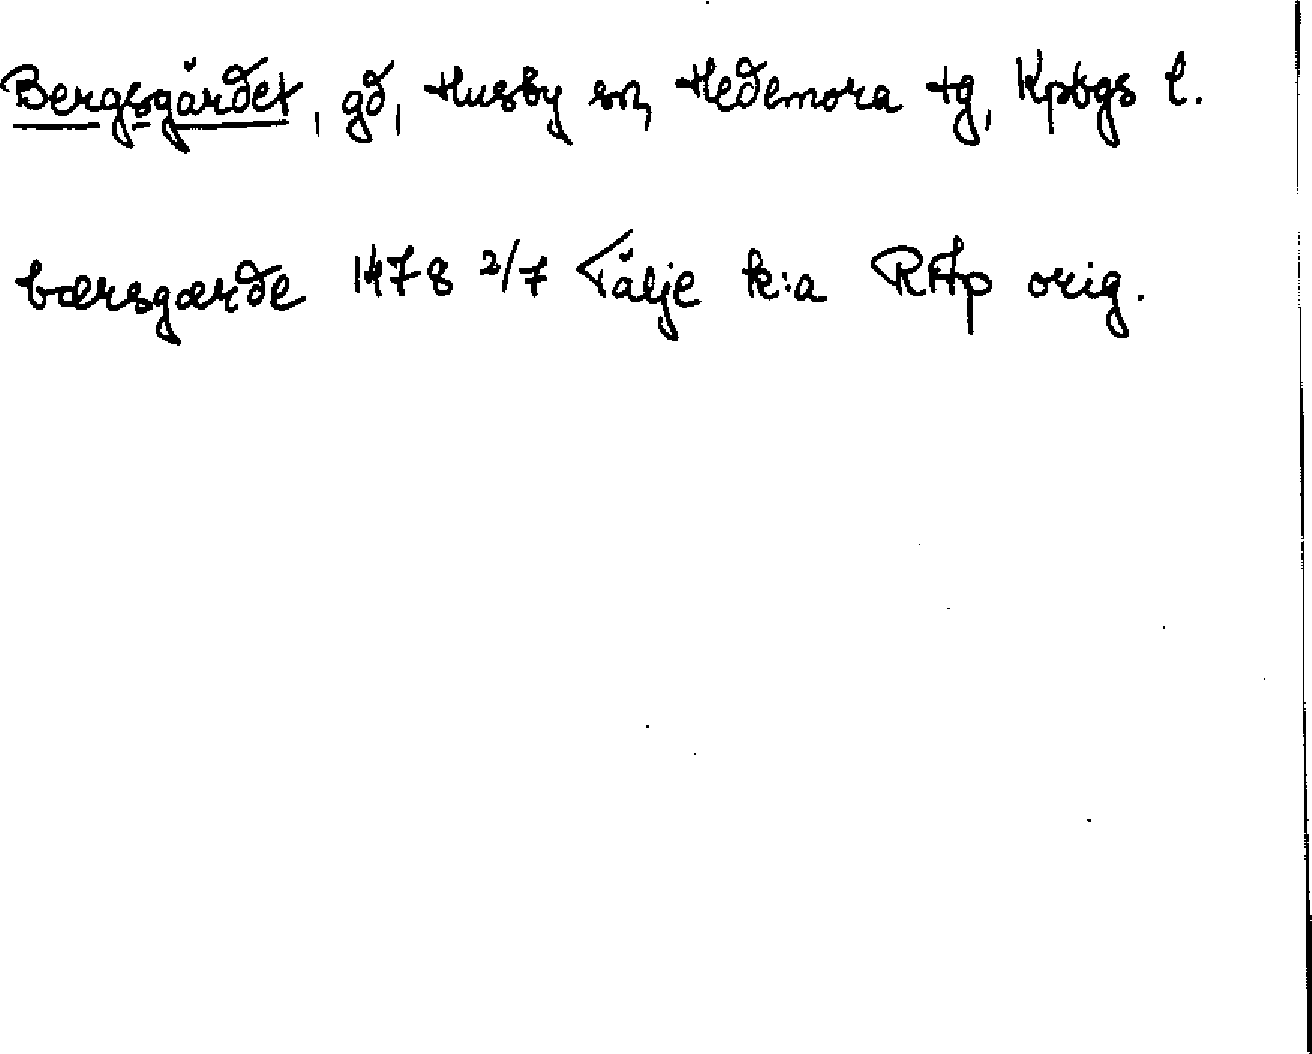 Bergsgärdet, gd, Husby sn, Hedemora tg, Kpbgs l.
bærsgærde 1478 2/7 Tälje k:a RAp orig.